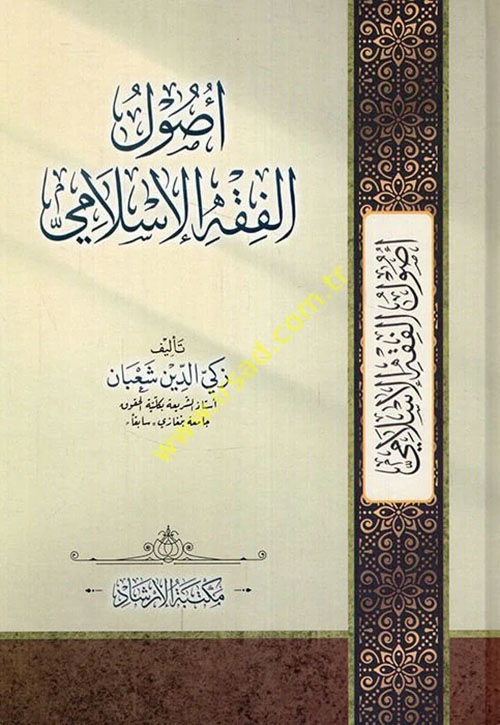 أُصُولُ
الفِقْهِ الإِسْلَامِيِّ
تَأْلِيْف
زَكِيّ الدِّين شَعْبَان
أستاذ الشريعة بكلية الحقوق
جامعة بنغازي، سابقاً
مكتبة الإرشاد
أُصُولُ الفِقْهِ الإِسْلَامِيِّ